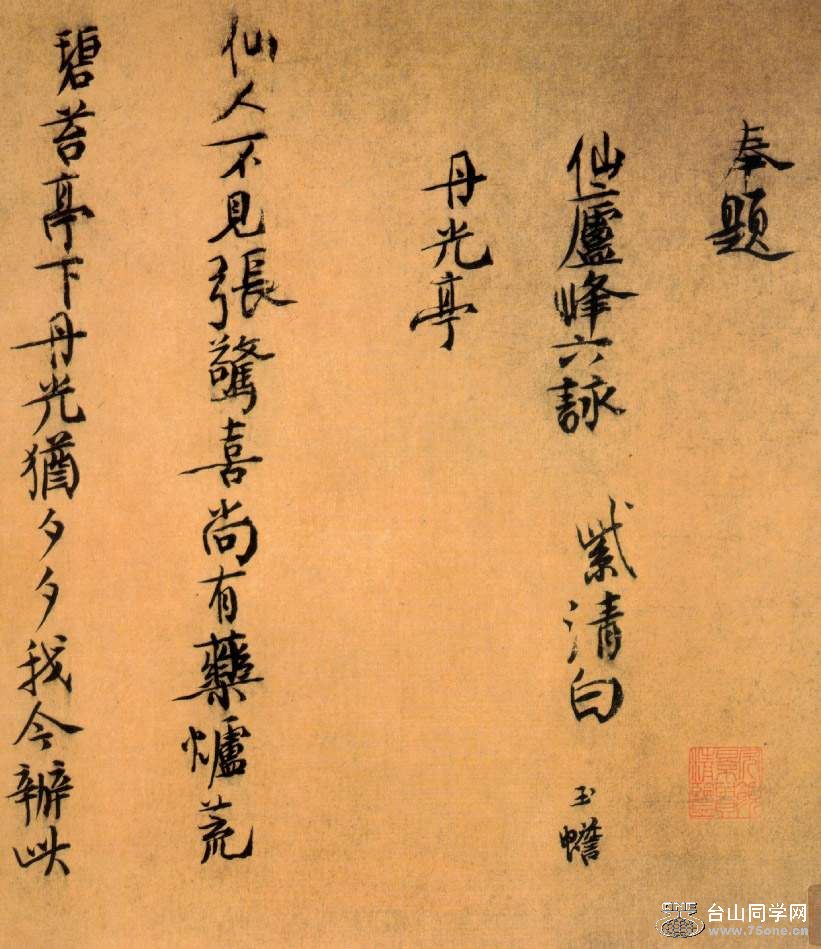 奉題
仙廬峰六詠 紫清白 玉蟾
丹光亭
仙人不見張驚喜尚有藥爐荒
碧苔亭下丹光猶夕夕我今辦此
台山同学网
www.75one.cn